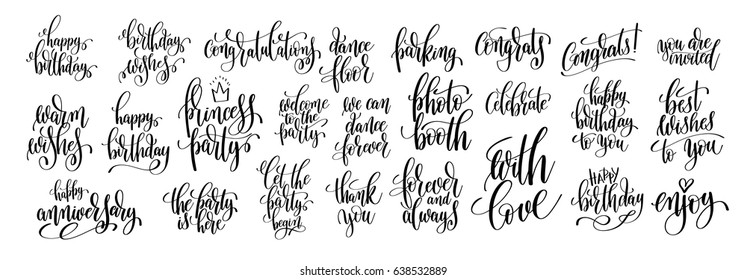 happy
birthday
birthday
wishes
congratulations
dance
floor
parking
congrats
Congrats!
you are
invited
warm
wishes
happy
birthday
princess
party
welcome
to the
party
we can
dance
forever
photo
booth
celebrate
happy
birthday
to you
best
wishes
to you
happy
anniversary
the party
is here
let the
party
begin
thank
you
forever
and
always
with
love
HAPPY
birthday
enjoy
shutterstock.com · 638532889